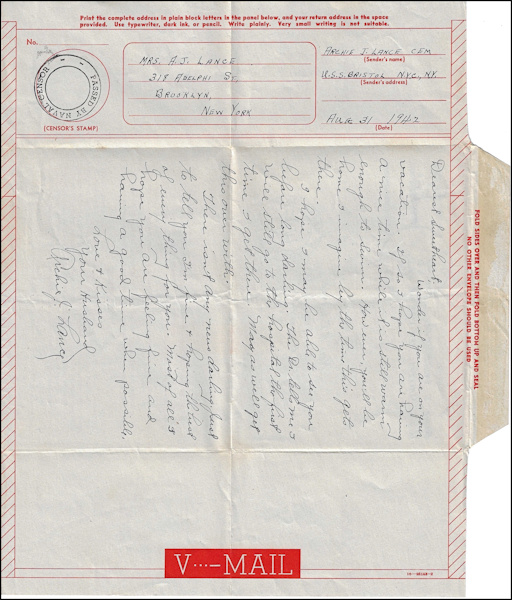 Print the complete address in plain block letters in the panel below, and your return address in the space
provided. Use typewriter, dark ink, or pencil. Write plainly. Very small writing is not suitable.
No.
PASSED BY NAVAL CENSOR
(CENSOR'S STAMP)
MRS. A.J. LANCE
319 ADELPHI ST.
BROOKLYN,
NEW YORK
ARCHIE J. LANCE CEM
(Sender's name)
U.S.S. BRISTOL NYC, N.Y.
(Sender's address)
AUG 31 1942
(Date)
Dearest Sweetheart.
Wonder if you are on your
vacation. If so I hope you are having
a nice time while it is still warm
enough to swim. You will be
home I imagine by the time this gets
there.
I hope I may be able to see you
before long darling. The Dr. tells me I
must still go to the hospital the first
time I get there. Maybe will get
this over with.
There isn't any news darling just
to tell you I'm fine & hoping the best
of everything for you. Most of all I
hope you are feeling fine and
having a good time when possible.
Love & Kisses
Your Husband
Archie J. Lance
FOLD SIDES OVER AND THEN FOLD BOTTOM UP AND SEAL
NO OTHER ENVELOPE SHOULD BE USED
V···—MAIL